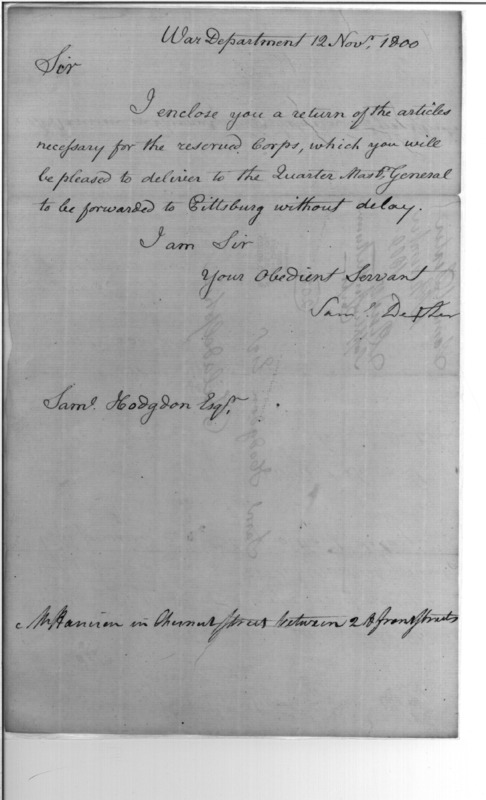 War Department 12 Novr. 1800
Sir
I enclose you a return of the articles
necessary for the reserved Corps, which you will
be pleased to deliver to the Quarter Mastr. General
to be forwarded to Pittsburg without delay.
I am Sir
Your Obedient Servant
Saml. Dexter
Saml. Hodgdon Esqr.
Mr Harrison in Chesnut Street between 2 & front Streets